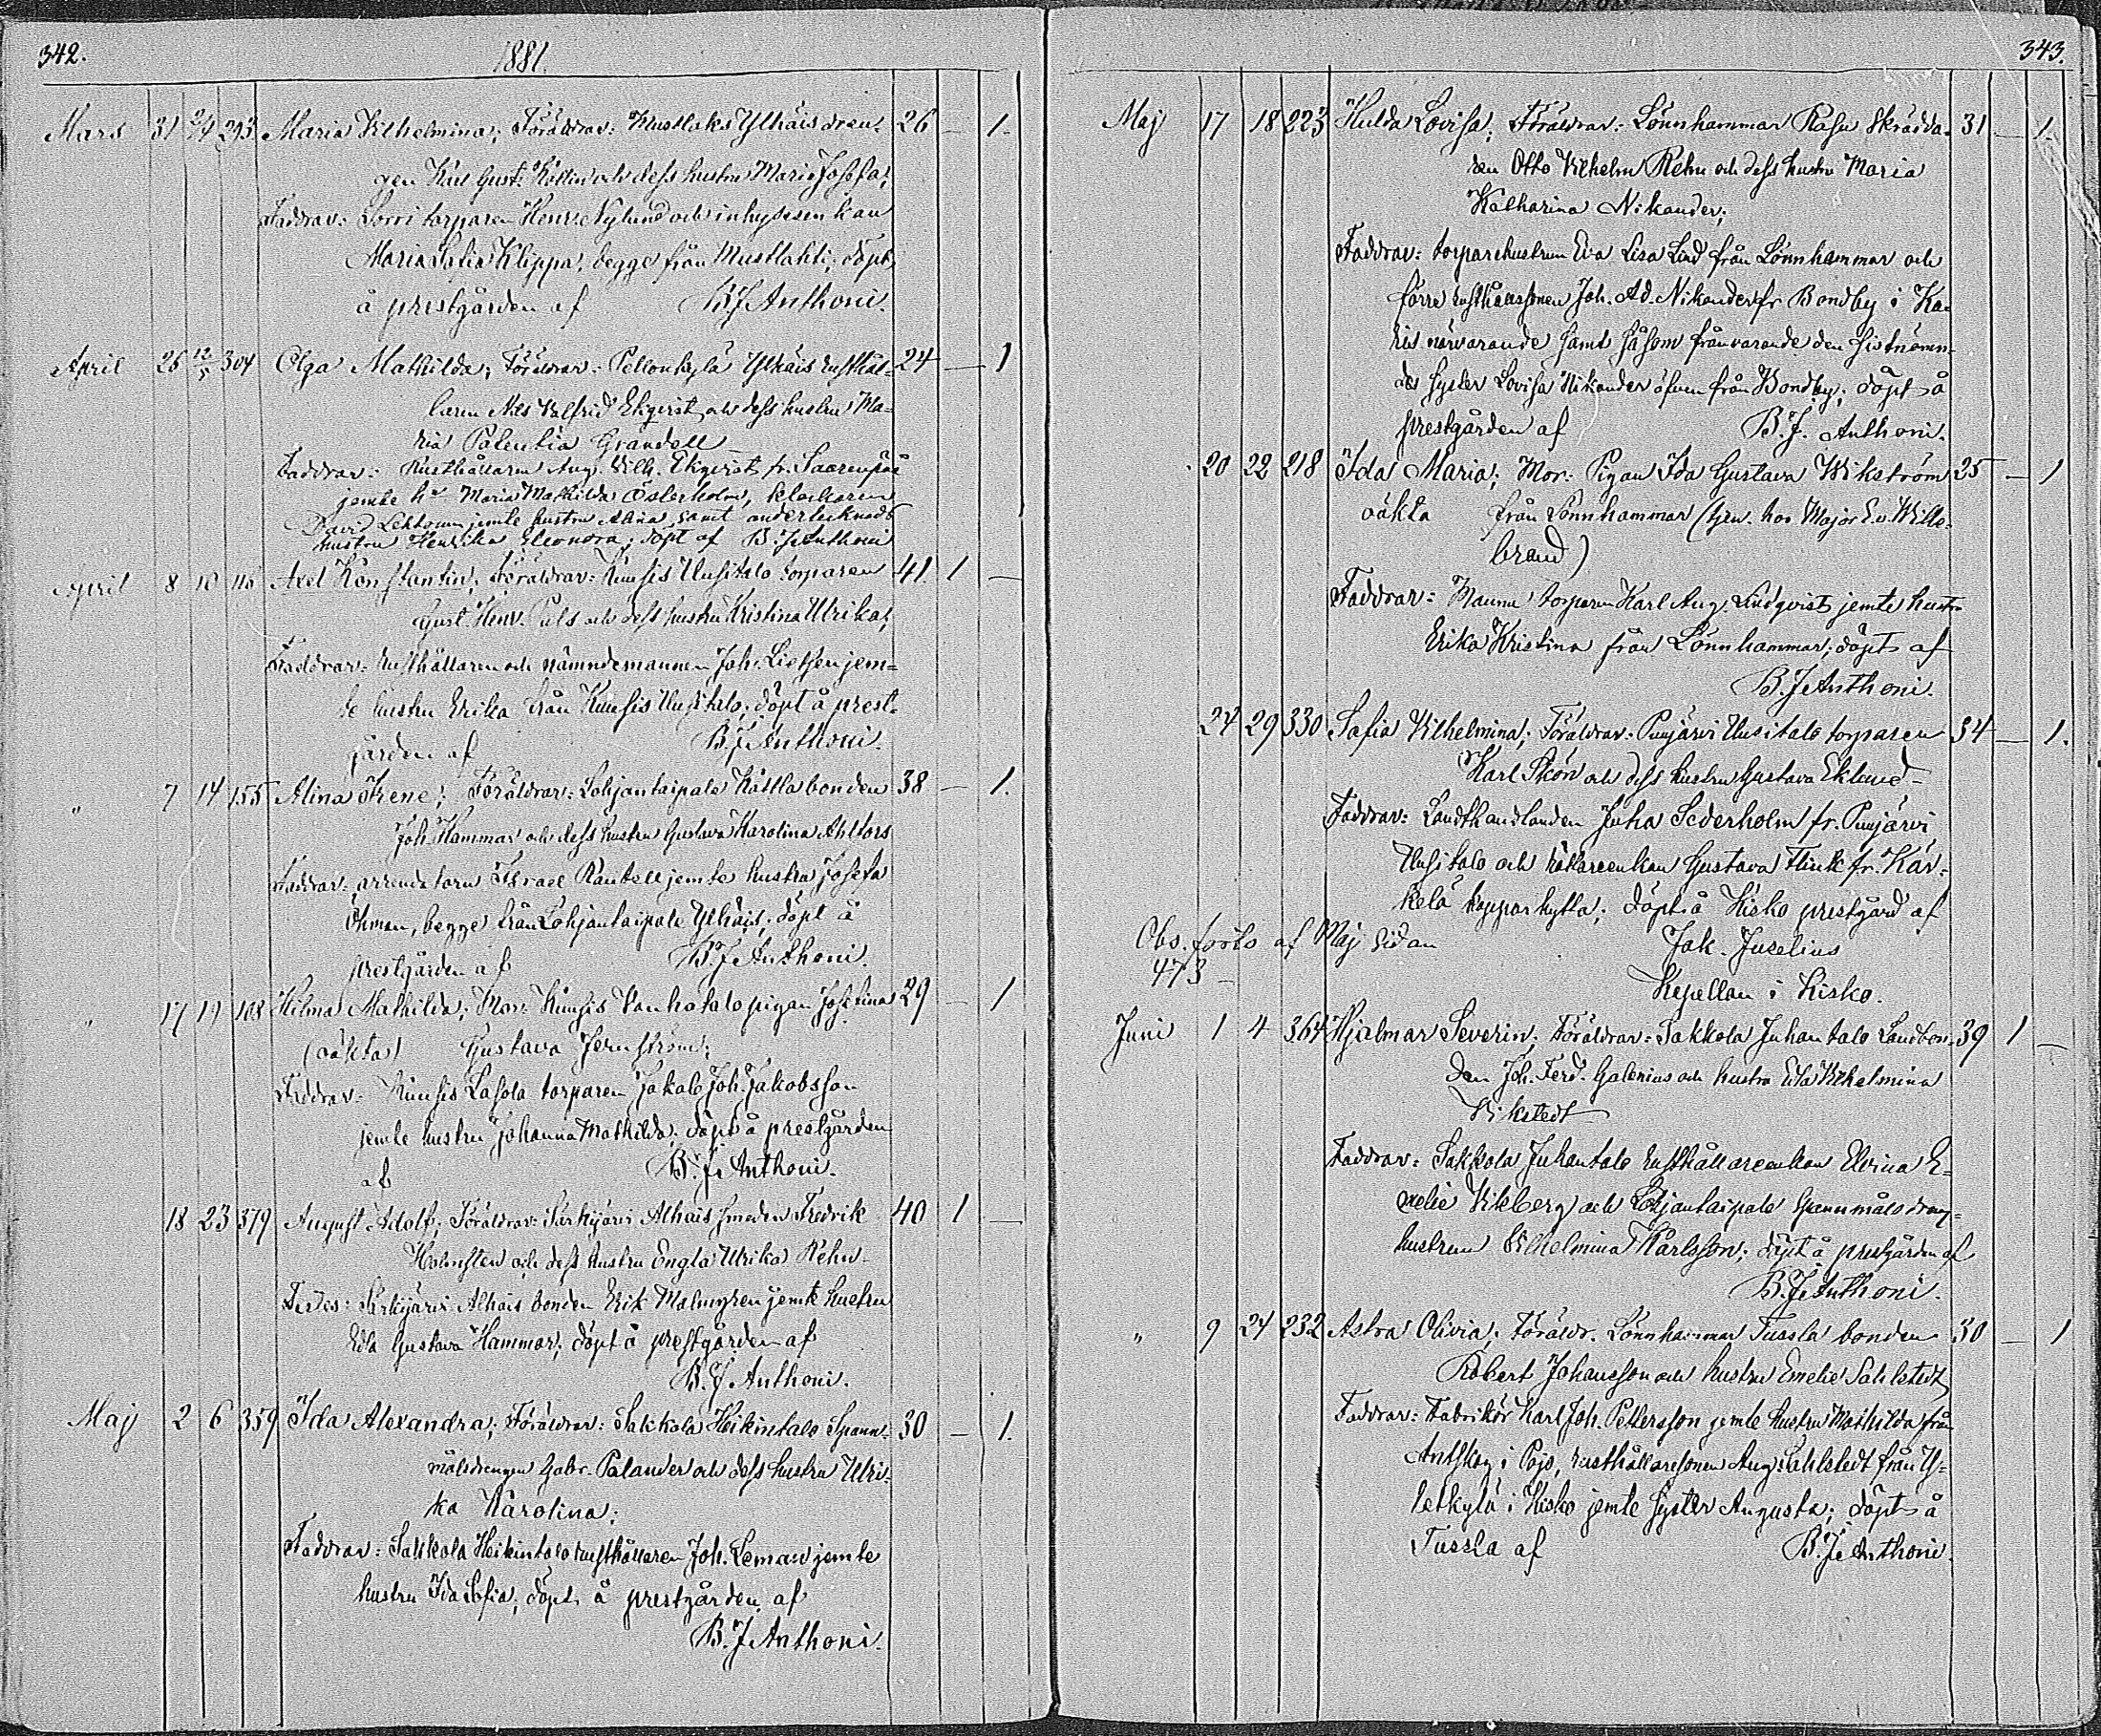 342.
1881.
Mars 31 2/4 293 Maria Vilhelmina; Föräldrar: Mustlaks Ylhäis dren- 26 — 1.
gen Karl Gust. och dess hustru Maria Josefa;
Faddrar: Sorri torparen Henr. Nylund och inhyseskan
Maria Sofia Klippa, begge från Mustlahti; döpt
å prestgården af B. J. Anthoni.
April 26 12/5 304 Olga Mathilda; Föräldrar: Pellonkylä Ylhäis rusthål- 24 — 1
laren Nils Valfrid Ekqvist och dess hustru Ma-
ria Palentia Grandell
Faddrar: Rusthållaren Aug. Vilh. Ekqvist fr. Saarenpää
jemte hu Maria Mathilda Österholm, klockaren
David Lehtonen jemte hustru Alina samt undertecknads
hustru Henrika Eleonora; döpt af B. J. Anthoni
April 8 10 110 Axel Konstantin; Föräldrar: Kuusis Uusitalo torparen 41. 1 —
Gust. Henr. Pals och dess hustru Kristina Ulrika;
Faddrar: rusthållaren och nämndemannen Joh. Lietzen jem-
te hustru Erika från Kuusis Uusitalo; döpt å prest-
gården af B. J. Anthoni.
" 7 14 155 Alina Irene; Föräldrar: Lohjantaipale Kättla bonden 38 — 1.
Joh. Hammar och dess hustru Gustava Karolina Ahlfors
Faddrar: arrendatorn Israel Rantell jemte hustru Josefa
Öhman, begge från Lohjantaipale Ylhäis; döpt å
prestgården af B. J. Anthoni.
" 17 19 108 Hilma Mathilda; Mor: Kuusis Vanhatalo pigan Josefina 29 — 1
(oäkta) Gustava Jernström;
Faddrar: Kuusis Lasola torparen Jakalo Joh. Jakobsson
jemte hustru Johanna Mathilda; döpt å prestgården
af B. J. Anthoni.
18 23 379 August Adolf; Föräldrar: Särkijärvi Alhais smeden Fredrik 40 1 —
Holmsten och dess hustru Engla Ulrika Rehn.
Test: Särkijärvi Alhais bonden Erik Malmgren jemte hustru
Eda Gustava Hammar; döpt å prestgården af
B. J. Anthoni.
Maj 2 6 359 Ida Alexandra; Föräldrar: Sakkola Heikintalo Spann- 30 — 1.
målsdrengen Gabr. Palander och dess hustru Ulri-
ka Karolina;
Faddrar: Sakkola Heikintalo rusthållaren Joh. Leman jemte
hustru Ida Sofia; döpt å prestgården af
B. J. Anthoni.
343.
Maj 17 18 223 Hulda Lovisa; Föräldrar: Lönnhammar Rasu skrädda- 31 — 1.
ren Otto Vilhelm Rehn och dess hustru Maria
Katharina Nikander;
Faddrar: torparehustrun Eva Lisa Lind från Lönnhammar och
förre rusthållssonen Joh. Ad. Nikander fr. Bondby i Ka-
ris närvarande samt såsom frånvarande den sistnämn-
des syster Lovisa Nikander äfven från Bondby; döpt å
prestgården af B. J. Anthoni.
20 22 218 Ida Maria; Mor: Pigan Ida Gustava Wikström 25 — 1
oäkta från Lönnhammar (tjen. hos Major E. v. Wille-
brand)
Faddrar: Maunu torparen Karl Aug. Lindqvist jemte hustru
Erika Kristina från Lönnhammar; döpt af
B. J. Anthoni.
24 29 330 Sofia Vilhelmina; Föräldrar: Puujärvi Uusitalo torparen 34 — 1.
Karl Skön och dess hustru Gustava Eklund
Faddrar: Landthandlanden Juha Sederholm fr. Puujärvi
Uusitalo och hållareenkan Gustava Flink fr. Kär-
kelä kopparhytta; döpt å Kisko prestgård af
Obs. forts af Maj sidan Jak. Juselius
473 Kapellan i Kisko.
Juni 1 4 364 Hjalmar Severin; Föräldrar: Sakkola Juhantalo Landbon- 39 1 —
den Joh. Ferd. Galenius och hustru Eda Vilhelmina
Vikstedt
Faddrar: Sakkola Juhantalo rusthållareenkan Elvina E-
melie Vikberg och Lohjantaipale spannmålsdreng-
hustrun Vilhelmina Karlsson; döpt å prestgården af
B. J. Anthoni.
" 9 24 232 Astra Olivia; Föräldr. Lönnhammar Tussla bonden 30 — 1
Robert Johansson och hustru Emelie Sahlstedt
Faddrar: Fabrikör Karl Joh. Pettersson jemte hustru Mathilda från
Antskog i Pojo, rusthållaresonen Aug. Sahlstedt från Y-
letkylä i Kisko jemte syster Augusta; döpt å
Tussla af B. J. Anthoni.